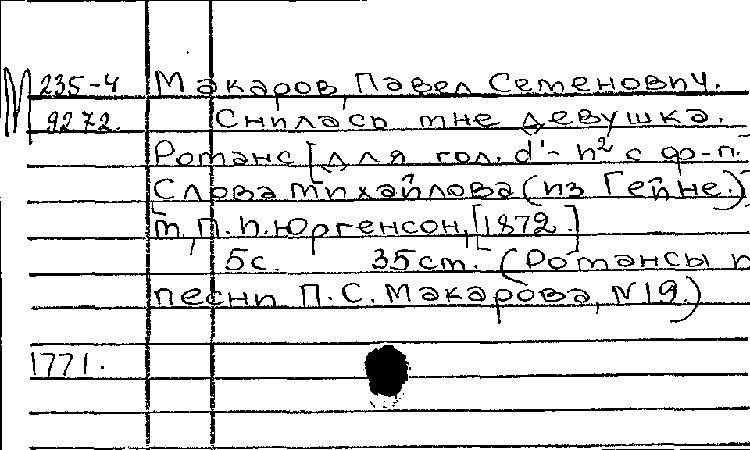 М 235-4 Макаров, Павел Семенович.
9272. Снилась мне девушка.
Романс [для гол. d¹- h² с ф-п.
Слова Михайлова (из Гейне.)]
М., П. Юргенсон, [1872.]
5с. 35см. (Романсы и
песни П.С. Макарова, N19.)
1771.